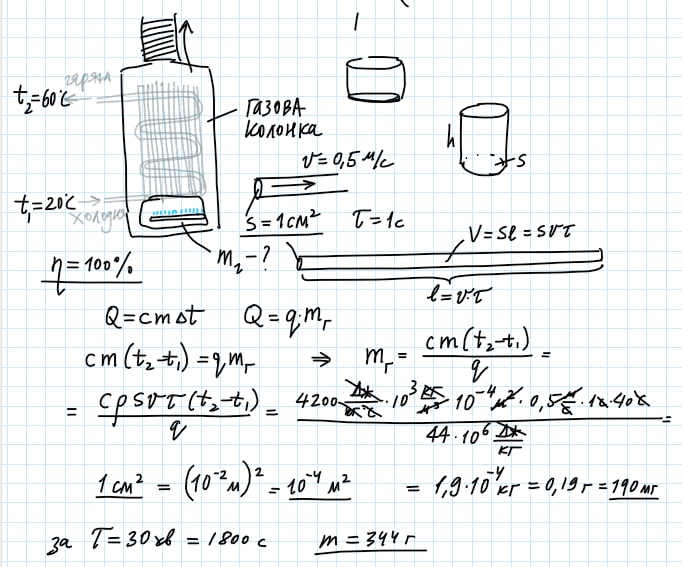 t₂=60°C
гаряча
ГАЗОВА
КОЛОНКА
h
S
v=0,5 м/с
t₁=20°C
холодна
S=1см²
τ=1c
η=100%
m₂-?
V=Sl=Svτ
l=v·τ
Q=cmΔt
Q=q·mг
cm(t₂-t₁)=qmг ⇒ mг = cm(t₂-t₁)/q =
= cρSvτ(t₂-t₁)/q = 4200 Дж/(кг·°C) · 10³ кг/м³ · 10⁻⁴ м² · 0,5 м/с · 1c · 40°C / 44·10⁶ Дж/кг =
1см² = (10⁻² м)² = 10⁻⁴ м²
= 1,9·10⁻⁴ кг = 0,19 г = 190 мг
за T=30хв = 1800 c
m = 344 г